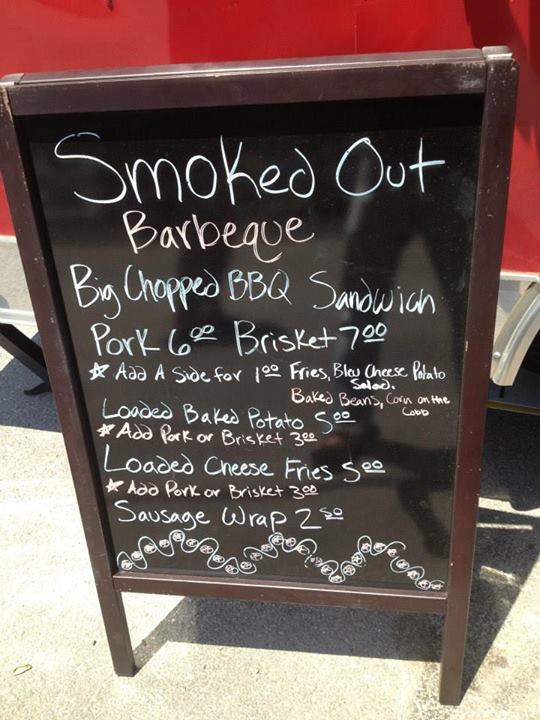 Smoked Out
Barbeque
Big Chopped BBQ Sandwich
Pork 6.00 Brisket 7.00
* Add A Side for 1.00 Fries, Bleu Cheese Potato
Salad.
Baked Beans, Corn on the
Cobb
Loaded Baked Potato 5.00
* Add Pork or Brisket 3.00
Loaded Cheese Fries 5.00
* Add Pork or Brisket 3.00
Sausage Wrap 2.50